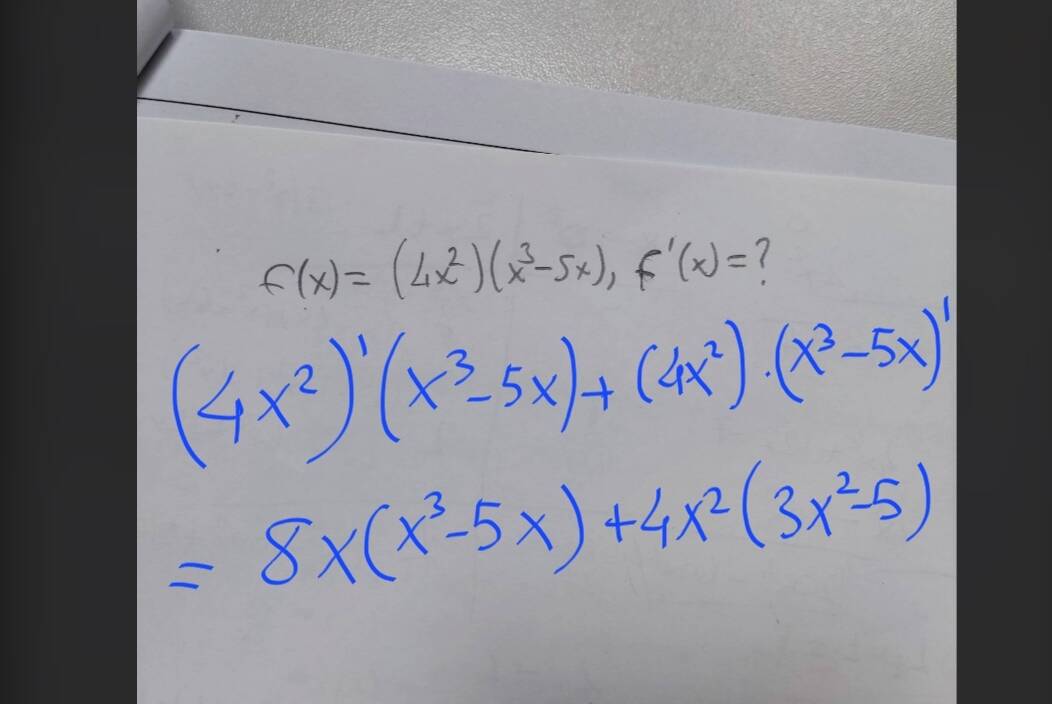 f(x) = (4x²)(x³-5x), f'(x) = ?
(4x²)'(x³-5x) + (4x²)·(x³-5x)'
= 8x(x³-5x) + 4x²(3x²-5)